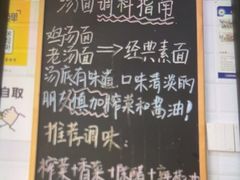 汤面调料指南
鸡汤面
老汤面 => 经典素面
汤底有味道,口味清淡的
朋友慎加榨菜和酱油!
推荐调味:
榨菜+香菜+
自取